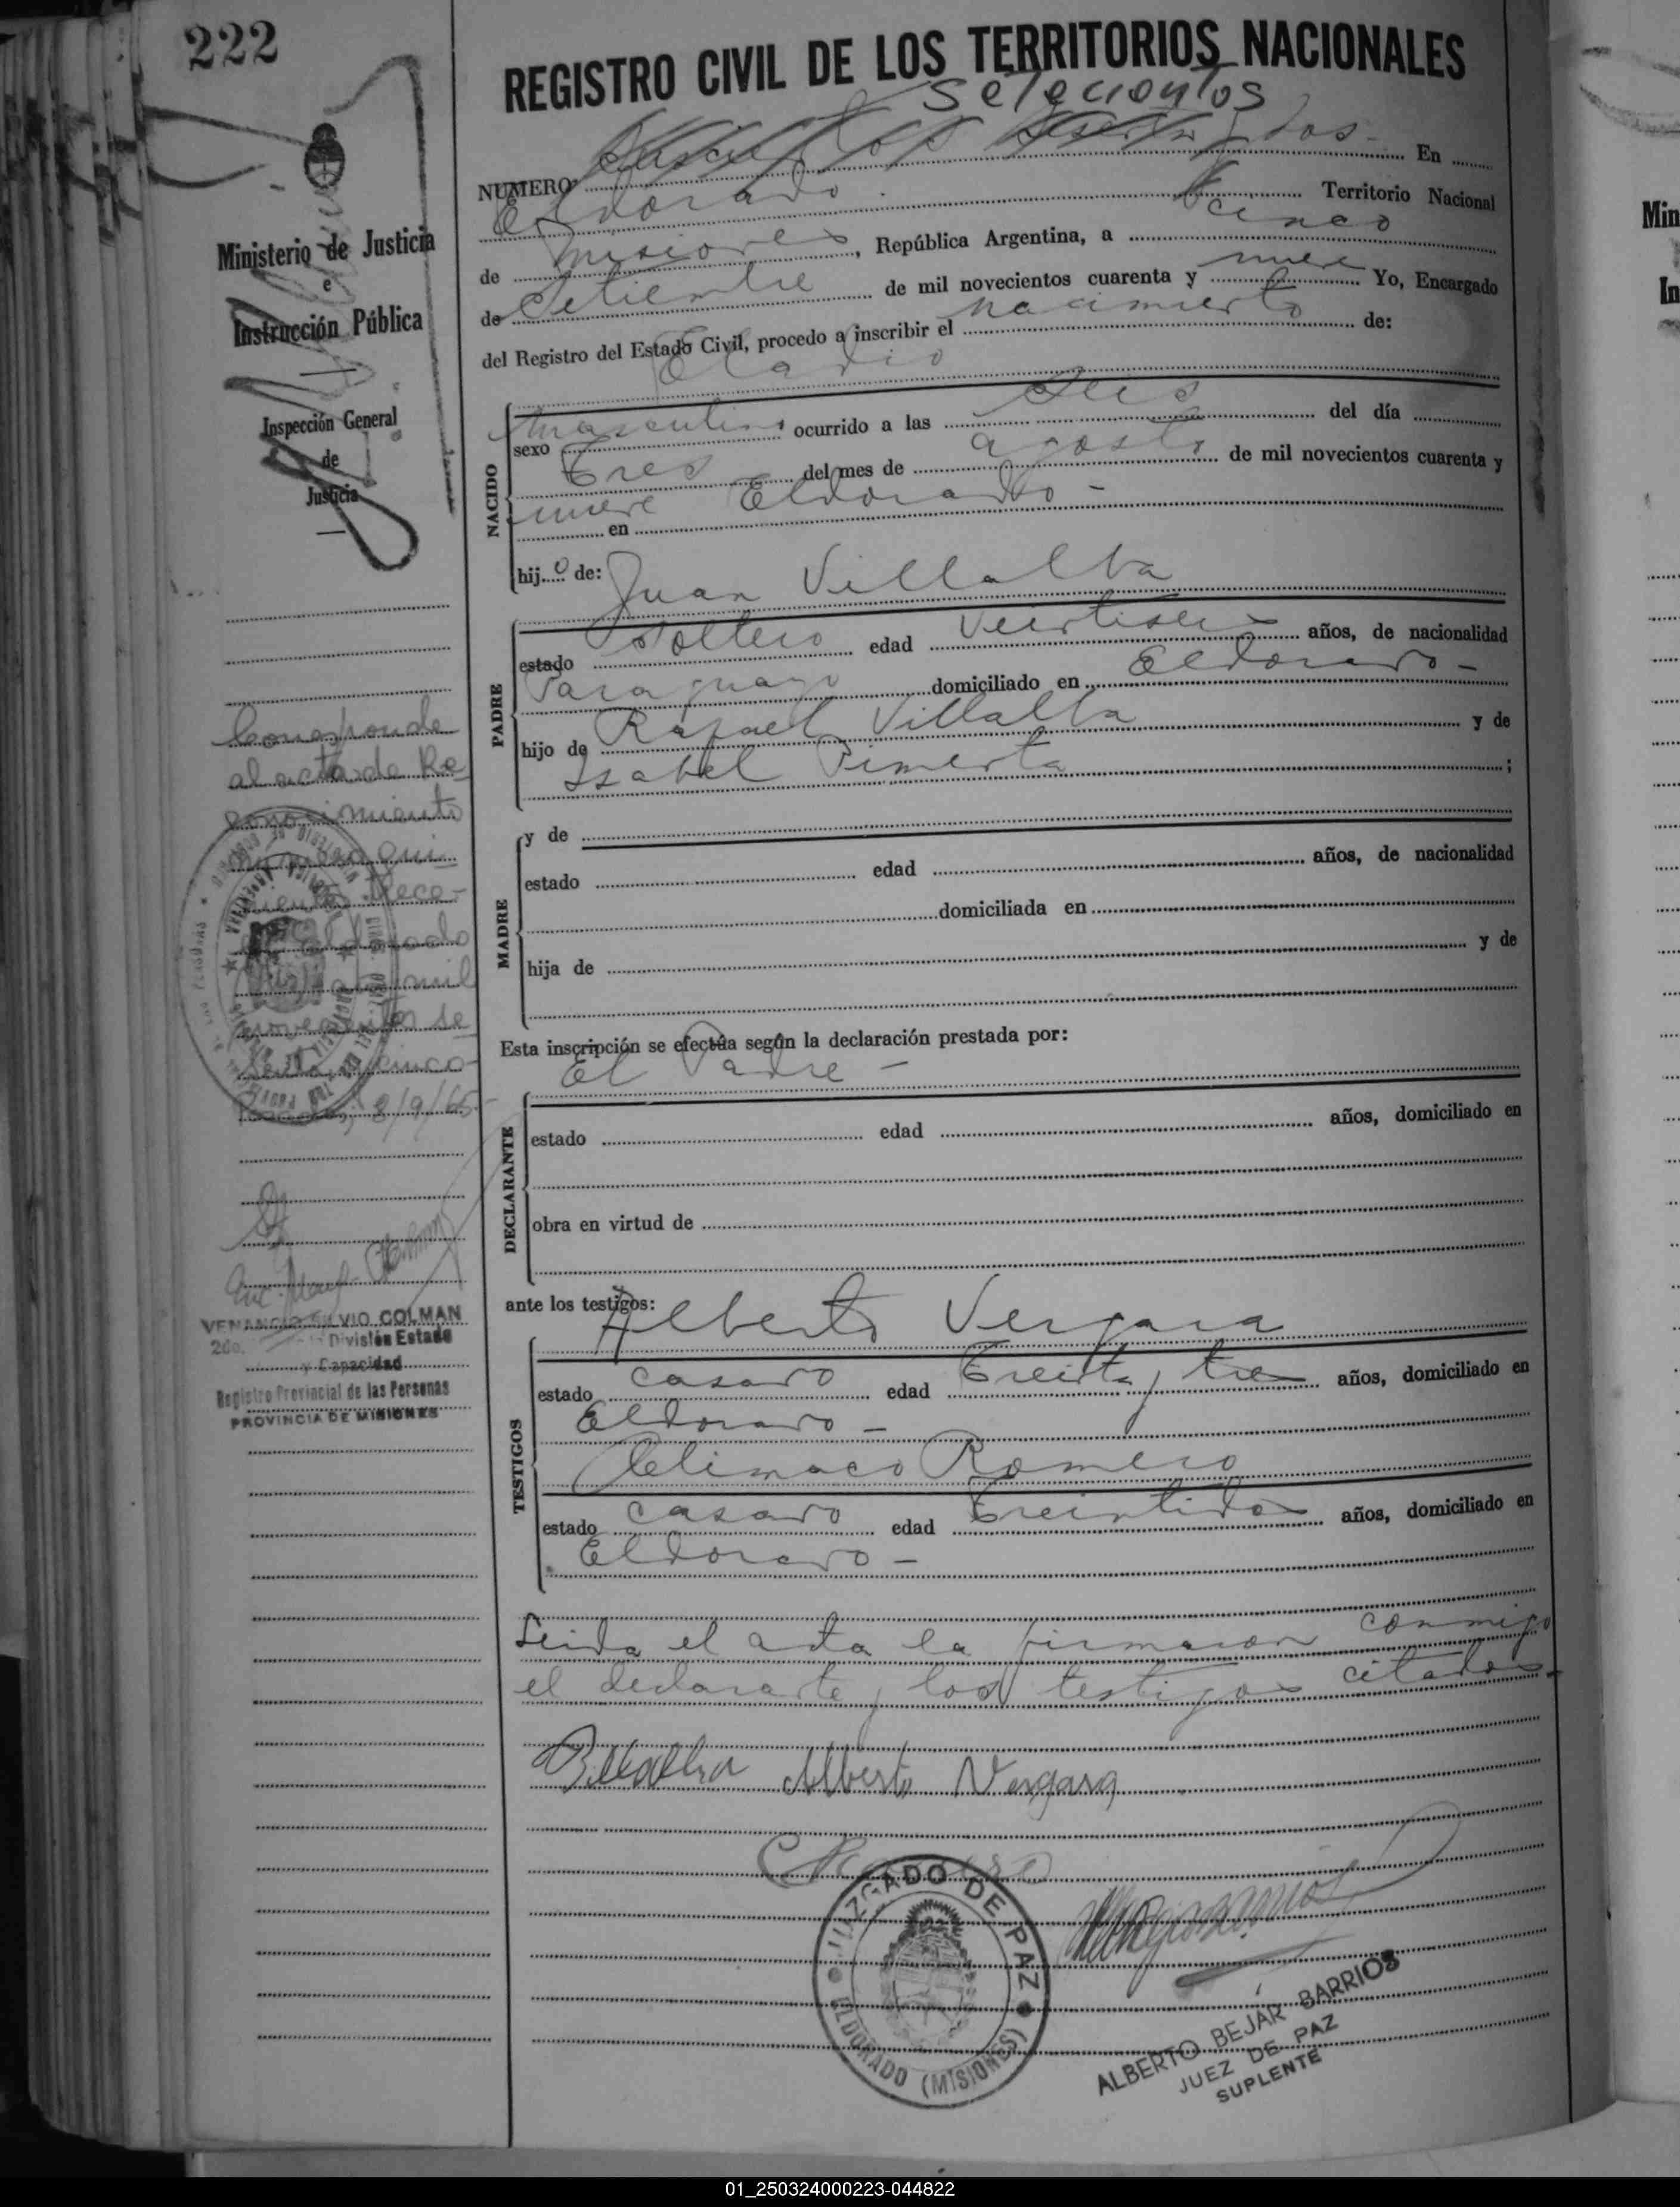 222
REGISTRO CIVIL DE LOS TERRITORIOS NACIONALES
Setecientos
NUMERO dos En
Eldorado Territorio Nacional
de Misiones, República Argentina, a cinco
de Setiembre de mil novecientos cuarenta y nueve Yo, Encargado
del Registro del Estado Civil, procedo a inscribir el nacimiento de:
Eladio
NACIDO
sexo masculino ocurrido a las seis del día
tres del mes de agosto de mil novecientos cuarenta y
nueve en Eldorado -
hijo de: Juan Villalba
PADRE
estado soltero edad veintiseis años, de nacionalidad
Paraguayo domiciliado en Eldorado -
hijo de Rafael Villalba y de
Isabel Pimenta ;
MADRE
y de
estado edad años, de nacionalidad
domiciliada en
hija de y de
Esta inscripción se efectúa según la declaración prestada por:
El Padre -
DECLARANTE
estado edad años, domiciliado en
obra en virtud de
ante los testigos: Alberto Vergara
TESTIGOS
estado casado edad treinta y tres años, domiciliado en
Eldorado -
Climaco Romero
estado casado edad treintidos años, domiciliado en
Eldorado -
Leida el acta la firmaron conmigo
el declarante y los testigos citados -
Villalba Alberto Vergara
JUZGADO DE PAZ
ELDORADO (MISIONES)
ALBERTO BEJAR BARRIOS
JUEZ DE PAZ
SUPLENTE
Ministerio de Justicia
e
Instrucción Pública
Inspección General
de
Justicia
Corresponde
al acta de Re
conocimiento
numero qui
nientos trece-
Eldorado
mil
novecientos se
senta y cinco-
8/9/65-
VENANCIO SILVIO COLMAN
2do. División Estado
y Capacidad
Registro Provincial de las Personas
PROVINCIA DE MISIONES
01_250324000223-044822